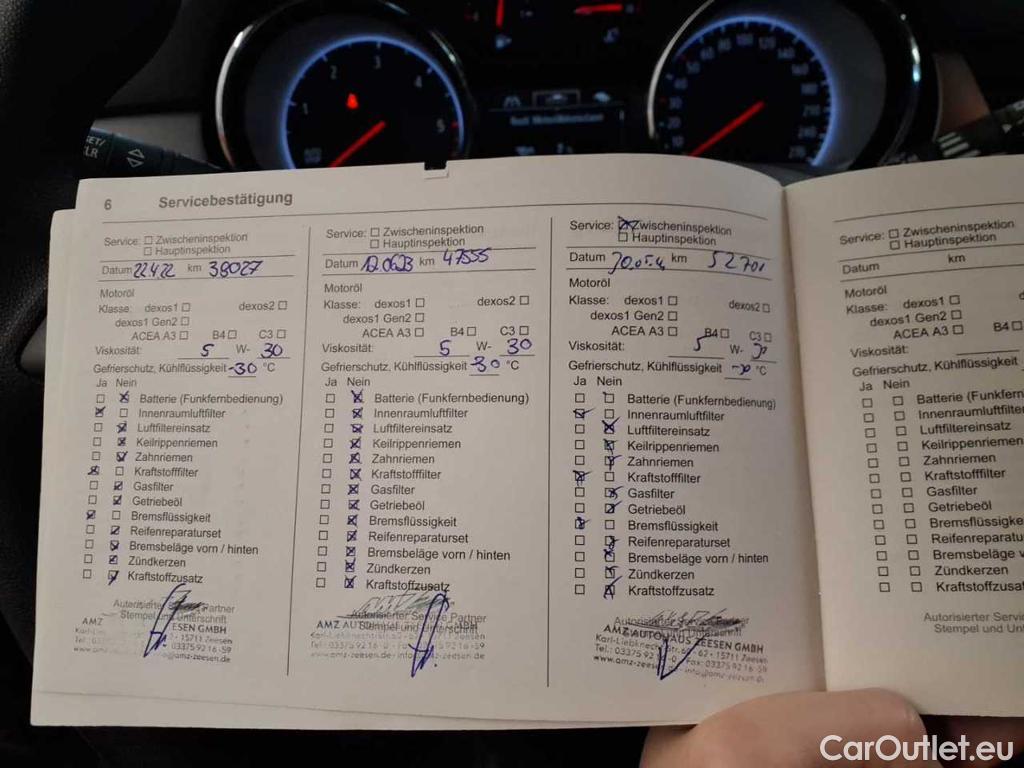 6 Servicebestätigung
Service: Zwischeninspektion
Hauptinspektion
Datum 22.4.22 km 38027
Motoröl
Klasse: dexos1 dexos2
dexos1 Gen2
ACEA A3 B4 C3
Viskosität: 5 W- 30
Gefrierschutz, Kühlflüssigkeit -30 °C
Ja Nein
Batterie (Funkfernbedienung)
Innenraumluftfilter
Luftfiltereinsatz
Keilrippenriemen
Zahnriemen
Kraftstofffilter
Gasfilter
Getriebeöl
Bremsflüssigkeit
Reifenreparaturset
Bremsbeläge vorn / hinten
Zündkerzen
Kraftstoffzusatz
Autorisierter Partner
Stempel und Unterschrift
AMZ ZEESEN GMBH
15711 Zeesen
03375 92 16-59
Service: Zwischeninspektion
Hauptinspektion
Datum 12.06.23 km 47555
Motoröl
Klasse: dexos1 dexos2
dexos1 Gen2
ACEA A3 B4 C3
Viskosität: 5 W- 30
Gefrierschutz, Kühlflüssigkeit -30 °C
Ja Nein
Batterie (Funkfernbedienung)
Innenraumluftfilter
Luftfiltereinsatz
Keilrippenriemen
Zahnriemen
Kraftstofffilter
Gasfilter
Getriebeöl
Bremsflüssigkeit
Reifenreparaturset
Bremsbeläge vorn / hinten
Zündkerzen
Kraftstoffzusatz
Autorisierter Service Partner
Stempel und Unterschrift
AMZ GMBH
15711 Zeesen
Service: Zwischeninspektion
Hauptinspektion
Datum km 52701
Motoröl
Klasse: dexos1 dexos2
dexos1 Gen2
ACEA A3 B4 C3
Viskosität: 5 W- 30
Gefrierschutz, Kühlflüssigkeit °C
Ja Nein
Batterie (Funkfernbedienung)
Innenraumluftfilter
Luftfiltereinsatz
Keilrippenriemen
Zahnriemen
Kraftstofffilter
Gasfilter
Getriebeöl
Bremsflüssigkeit
Reifenreparaturset
Bremsbeläge vorn / hinten
Zündkerzen
Kraftstoffzusatz
AMZ AUTOHAUS ZEESEN GMBH
Karl-Liebknecht-Str. 60 - 62 - 15711 Zeesen
Tel.: 03375 92 16-0 - Fax: 03375 92 16-59
www.amz-zeesen.de - info@amz-zeesen.de
Service: Zwischeninspektion
Hauptinspektion
Datum km
Motoröl
Klasse: dexos1
dexos1 Gen2
ACEA A3 B4
Viskosität:
Gefrierschutz, Kühlflüssigkeit
Ja Nein
Batterie (Funkfern
Innenraumluftfilter
Luftfiltereinsatz
Keilrippenriemen
Zahnriemen
Kraftstofffilter
Gasfilter
Getriebeöl
Bremsflüssigke
Reifenreparatu
Bremsbeläge v
Zündkerzen
Kraftstoffzusat
Autorisierter Serv
Stempel und Unt
CarOutlet.eu